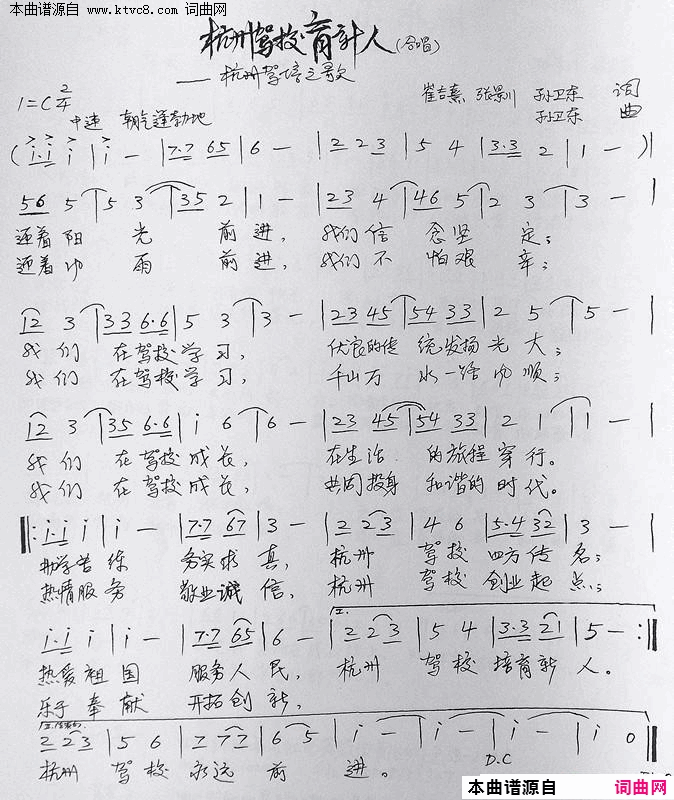 本曲谱源自
www.ktvc8.com 词曲网
杭州驾校育新人(合唱)
——杭州驾培之歌
1=C 2/4
中速 朝气蓬勃地
崔言熹 张景川 孙卫东 词
孙卫东 曲
(i·i i | i – | 7·7 65 | 6 – | 2 23 | 5 4 | 3·3 2 | 1 – )|
56 5 | 5 3 | 35 2 | 1 – | 23 4 | 46 5 | 2 3 | 3 – |
迎着阳 光 前 进, 我们信 念坚 定;
迎着风 雨 前 进, 我们不 怕艰 辛;
12 3 | 33 6·6 | 5 3 | 3 – | 23 45 | 54 33 | 2 5 | 5 – |
我 们 在驾校学 习, 优良的传 统发扬 光 大;
我 们 在驾校学 习, 千山万 水一路 风 顺;
12 3 | 35 6·6 | i 6 | 6 – | 23 45 | 54 33 | 2 1 | 1 – |
我 们 在驾校 成 长, 在生活 的旅程 穿 行。
我 们 在驾校 成 长, 共同投身 和谐的 时 代。
‖: i·i i | i – | 7·7 67 | 3 – | 2 23 | 4 6 | 5·4 32 | 3 – |
勤学苦 练 务实求 真, 杭州 驾 校 四方传 名;
热情服 务 敬业诚 信, 杭州 驾 校 创业起 点;
I.
i·i i | i – | 7·7 65 | 6 – | 2 23 | 5 4 | 3·3 21 | 5 – :‖
热爱祖 国 服务人 民, 杭州 驾 校 培育新 人。
乐于奉 献 开拓创 新,
2 23 | 5 6 | 7 77 | 6 5 | i – | i – | i – | i 0 ‖
杭州 驾 校 永远 前 进。
D.C
本曲谱源自 词曲网